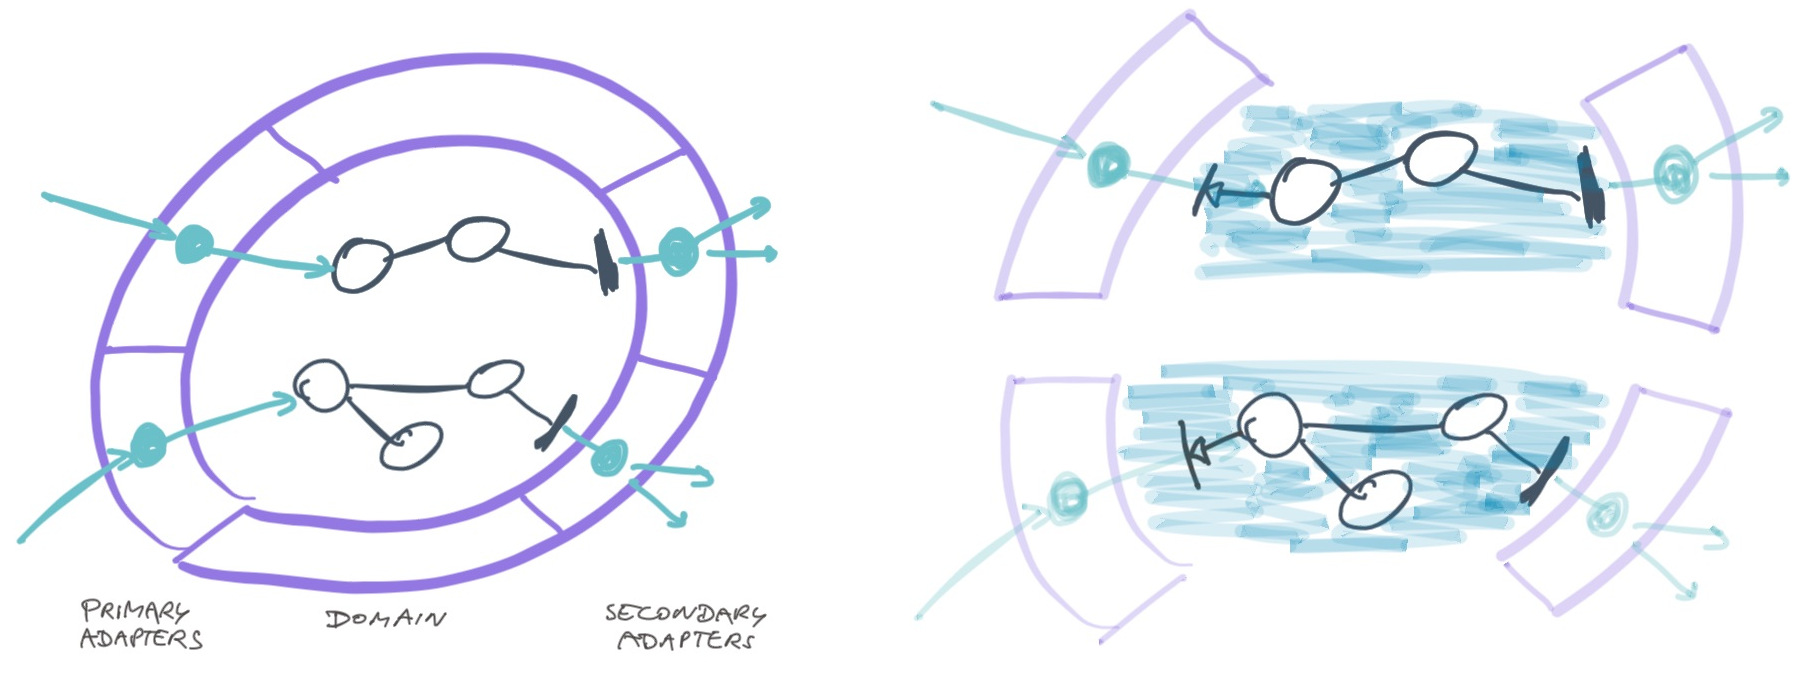 PRIMARY
ADAPTERS
DOMAIN
SECONDARY
ADAPTERS